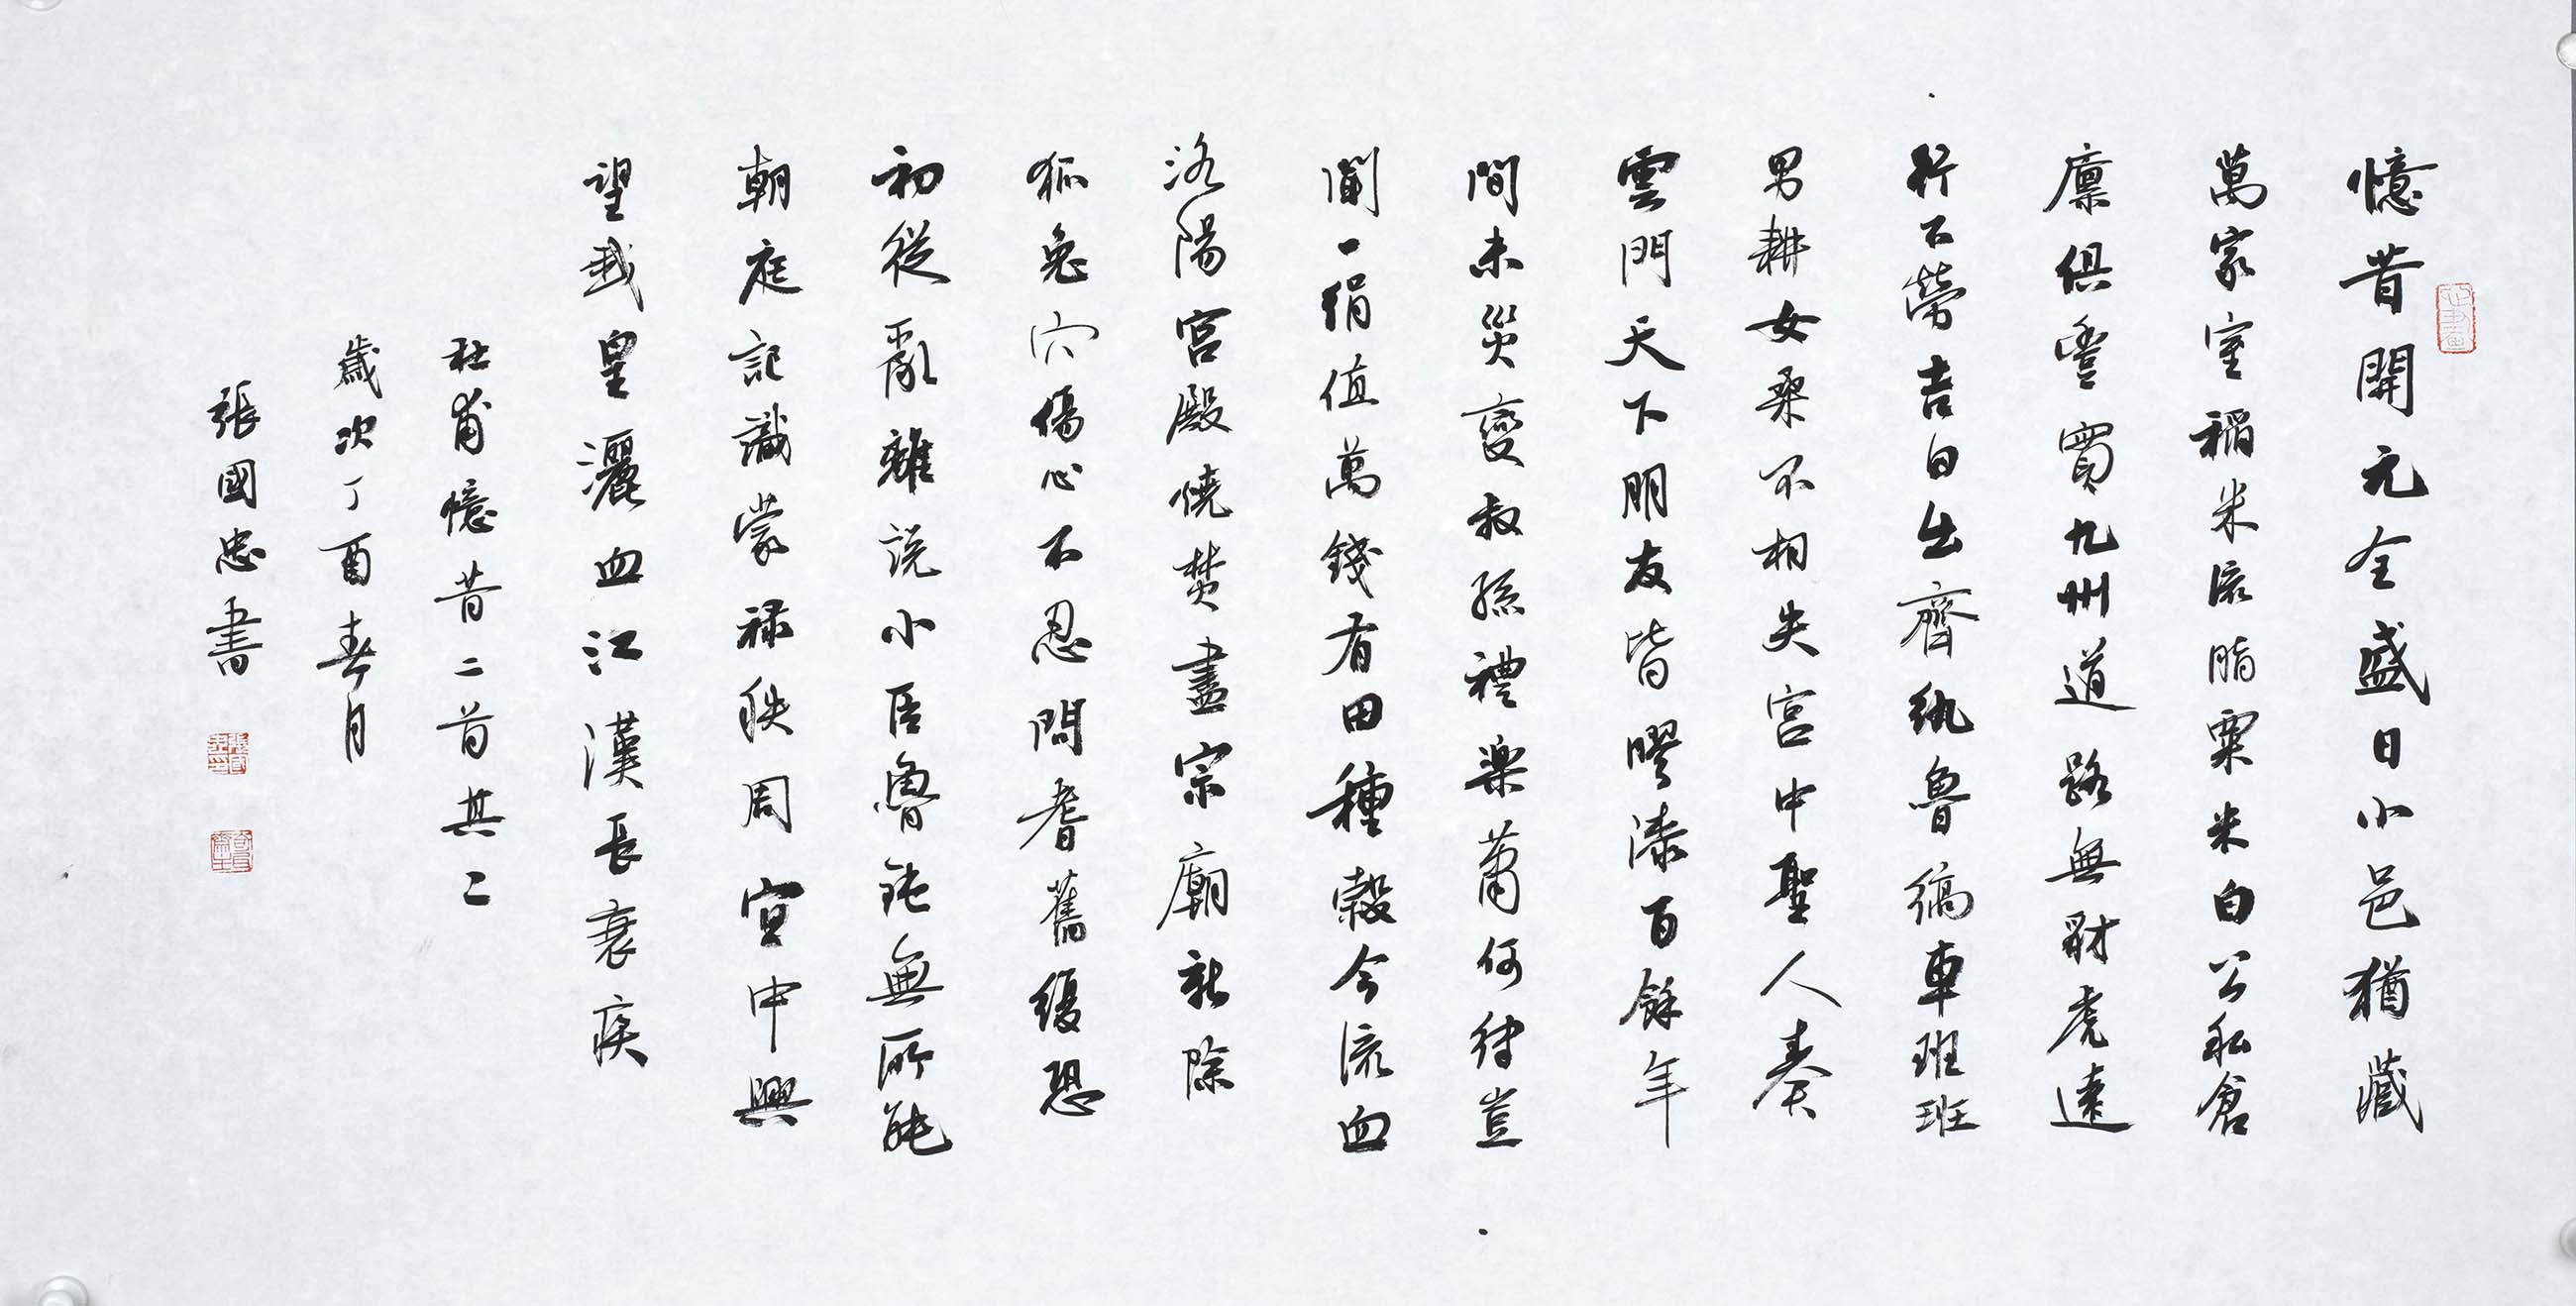 憶昔開元全盛日小邑猶藏
萬家室稻米流脂粟米白公私倉
廪俱豐實九州道路無豺虎遠
行不勞吉日出齊紈魯縞車班班
男耕女桑不相失宮中聖人奏
雲門天下朋友皆膠漆百餘年
間未災變叔孫禮樂蕭何律豈
聞一絹值萬錢有田種穀今流血
洛陽宮殿燒焚盡宗廟新除
狐兔穴傷心不忍問耆舊復恐
初從亂離說小臣魯鈍無所能
朝庭記識蒙祿秩周宣中興
望我皇灑血江漢長衰疾
杜甫憶昔二首其二
歲次丁酉春月
張國忠書
張國忠印